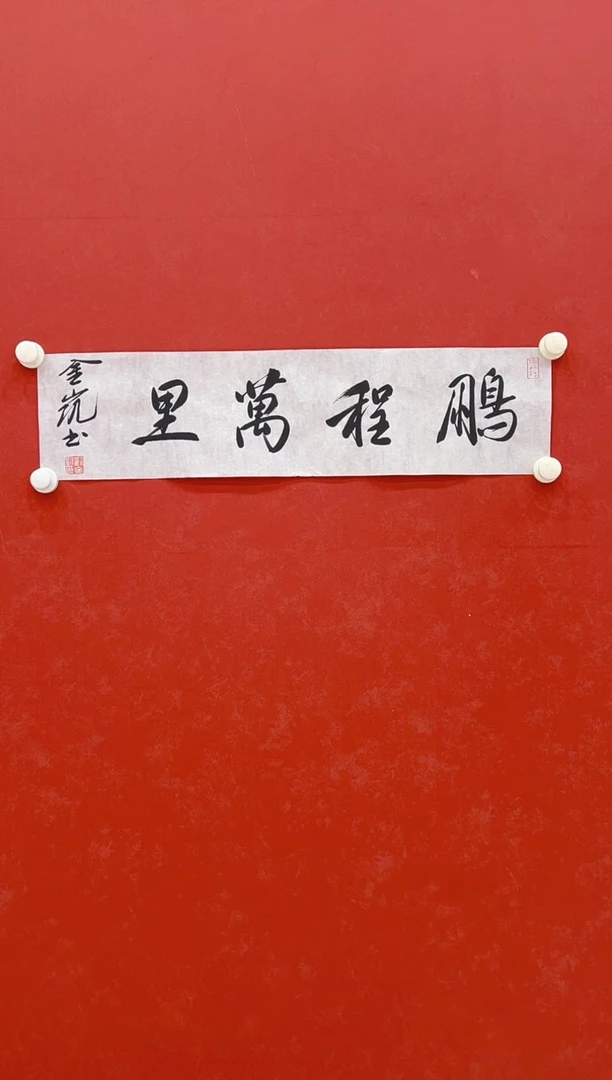 鵬程萬里
金嵐书